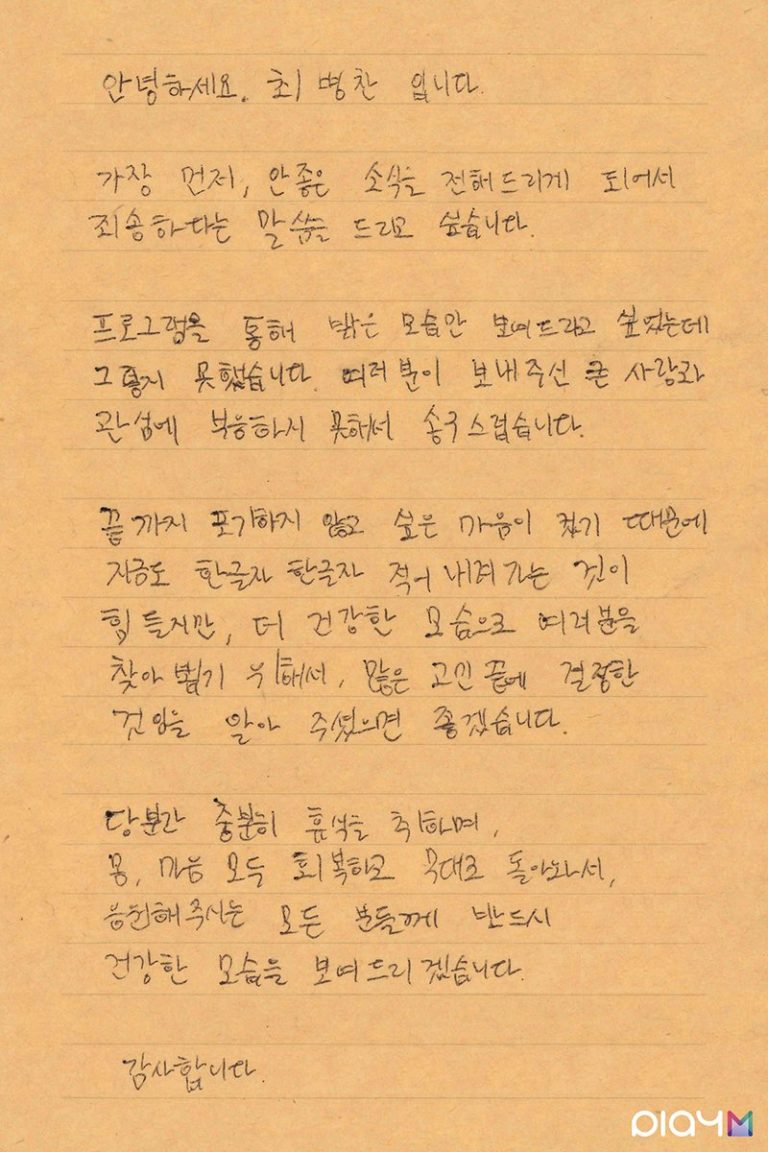 안녕하세요. 최 병찬 입니다.
가장 먼저, 안좋은 소식을 전해드리게 되어서
죄송하다는 말씀을 드리고 싶습니다.
프로그램을 통해 밝은 모습만 보여드리고 싶었는데
그렇지 못했습니다. 여러분이 보내주신 큰 사랑과
관심에 부응하지 못해서 송구스럽습니다.
끝까지 포기하지 않고 싶은 마음이 컸기 때문에
지금도 한글자 한글자 적어 내려가는 것이
힘들지만, 더 건강한 모습으로 여러분을
찾아 뵙기 위해서, 많은 고민 끝에 결정한
것임을 알아 주셨으면 좋겠습니다.
당분간 충분히 휴식을 취하며,
몸, 마음 모두 회복하고 무대로 돌아와서,
응원해주시는 모든 분들께 반드시
건강한 모습을 보여드리겠습니다.
감사합니다.
PlayM